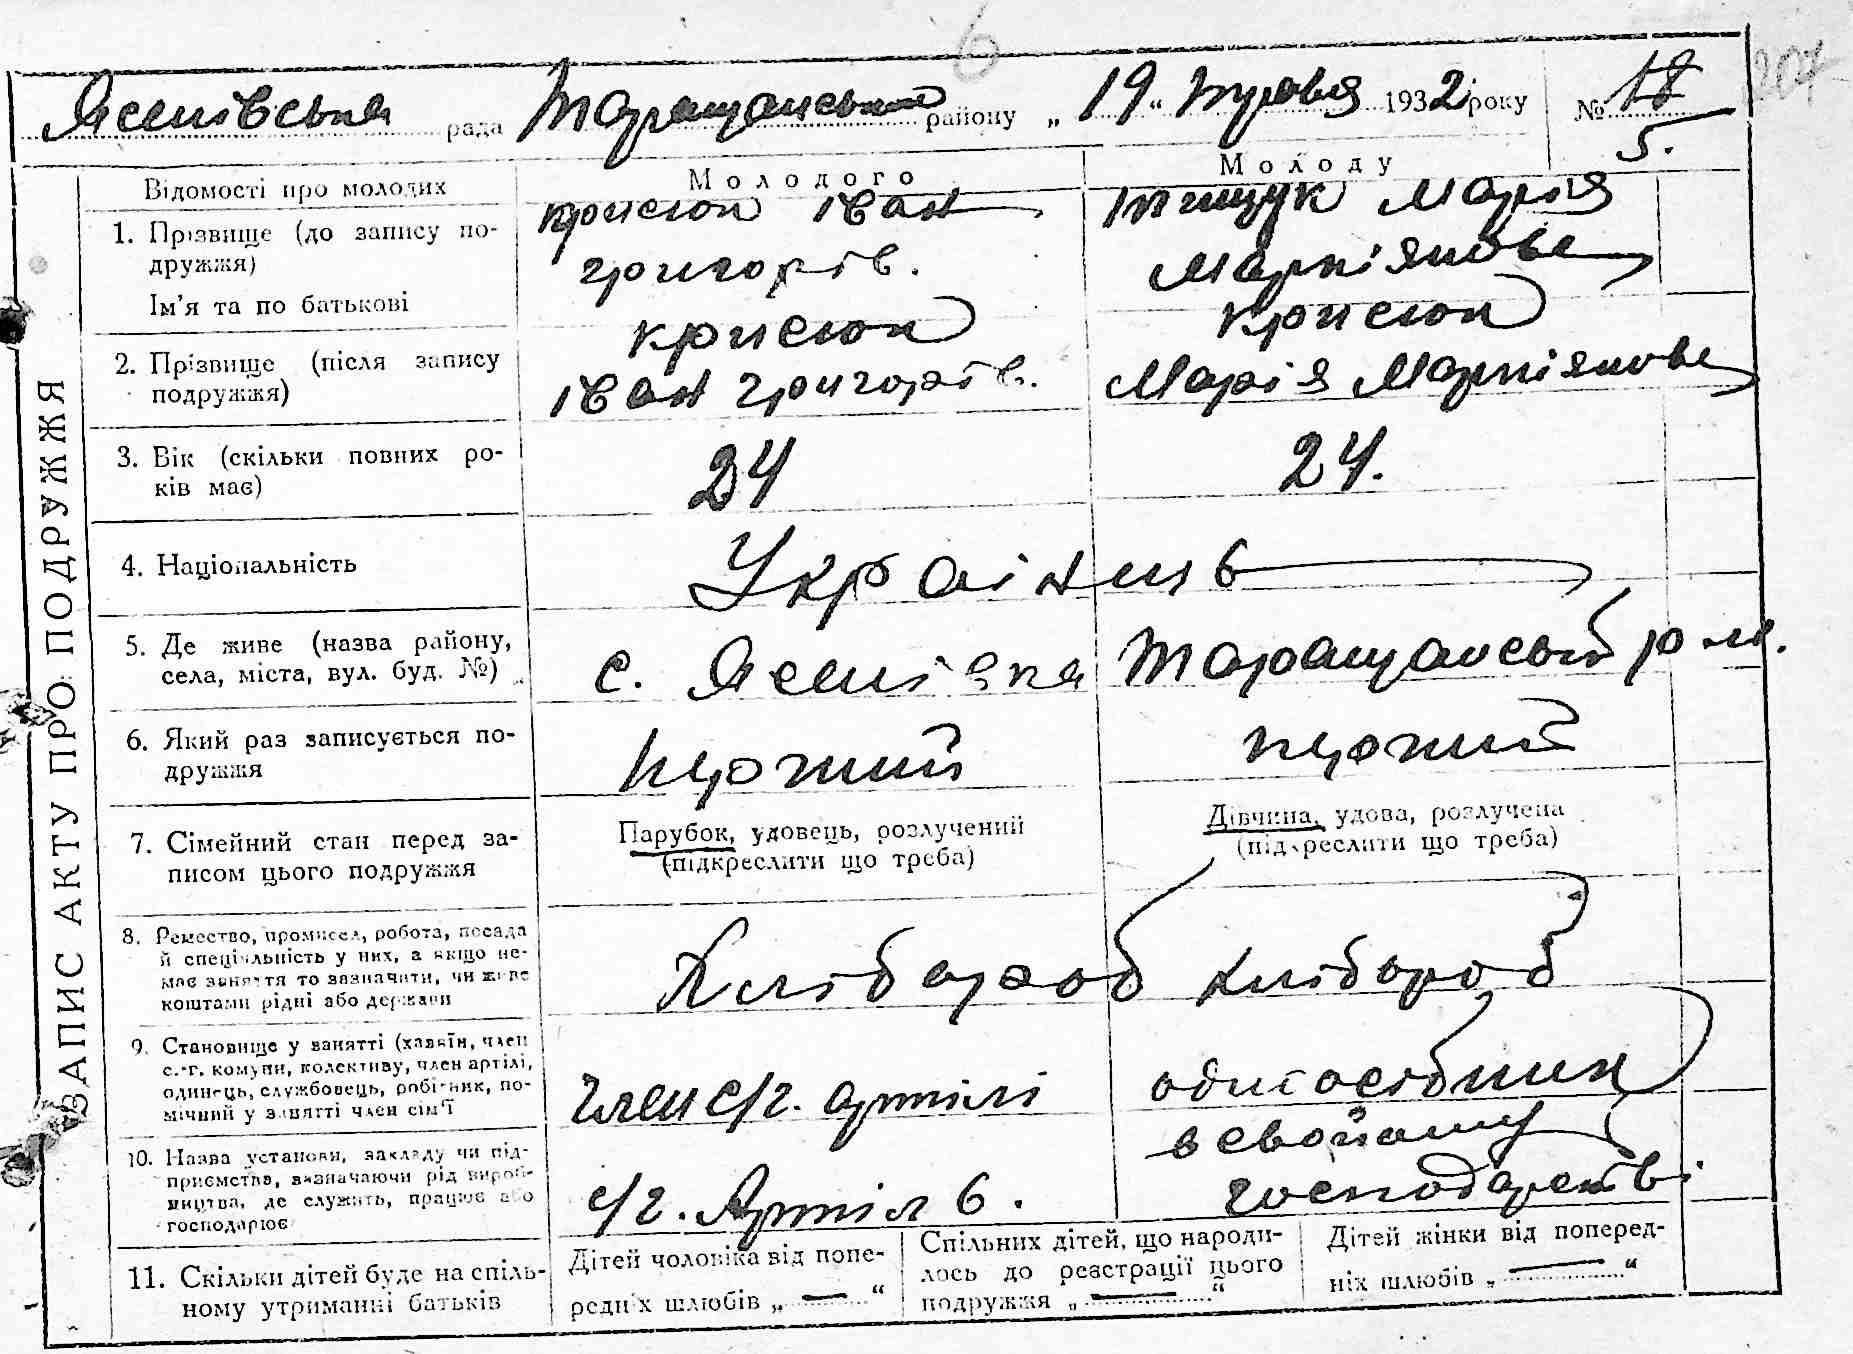 6
204
Ясенівська рада Таращанськ району „ 19 “ Травня 1932 року № 18
5.
ЗАПИС АКТУ ПРО ПОДРУЖЖЯ
Відомості про молодих
Молодого
Молоду
1. Прізвище (до запису по-
дружжя)
Ім'я та по батькові
Крисюк Іван
Григорів.
Тищук Марія
Маркіянове
2. Прізвище (після запису
подружжя)
Крисюк
Іван Григорів.
Крисюк
Марія Маркіянове
3. Вік (скільки повних ро-
ків має)
24
24.
4. Національність
Українць
5. Де живе (назва району,
села, міста, вул. буд. №)
с. Ясенівка Таращанський р-н.
6. Який раз записується по-
дружжя
перший
перший
7. Сімейний стан перед за-
писом цього подружжя
Парубок, удовець, розлучений
(підкреслити що треба)
Дівчина, удова, розлучена
(підкреслити що треба)
8. Ремество, промисел, робота, посада
й спеціяльність у них, а якщо не-
має заняття то зазначити, чи живе
коштами рідні або держави
Хлібороб
хлібороб
9. Становище у занятті (хазяїн, член
с.-г. комуни, колективу, член артілі,
одинець, службовець, робітник, по-
мічний у занятті член сім'ї
член с/г. артілі
одноосібник
10. Назва установи, закладу чи під-
приємства, зазначаючи рід вироб-
ництва, де служить, працює або
господарює
с/г. Артіль.
в свойому
господарстві
11. Скільки дітей буде на спіль-
ному утриманні батьків
Дітей чоловіка від попе-
редніх шлюбів „ — “
Спільних дітей, що народи-
лось до реєстрації цього
подружжя „ — “
Дітей жінки від поперед-
ніх шлюбів „ — “